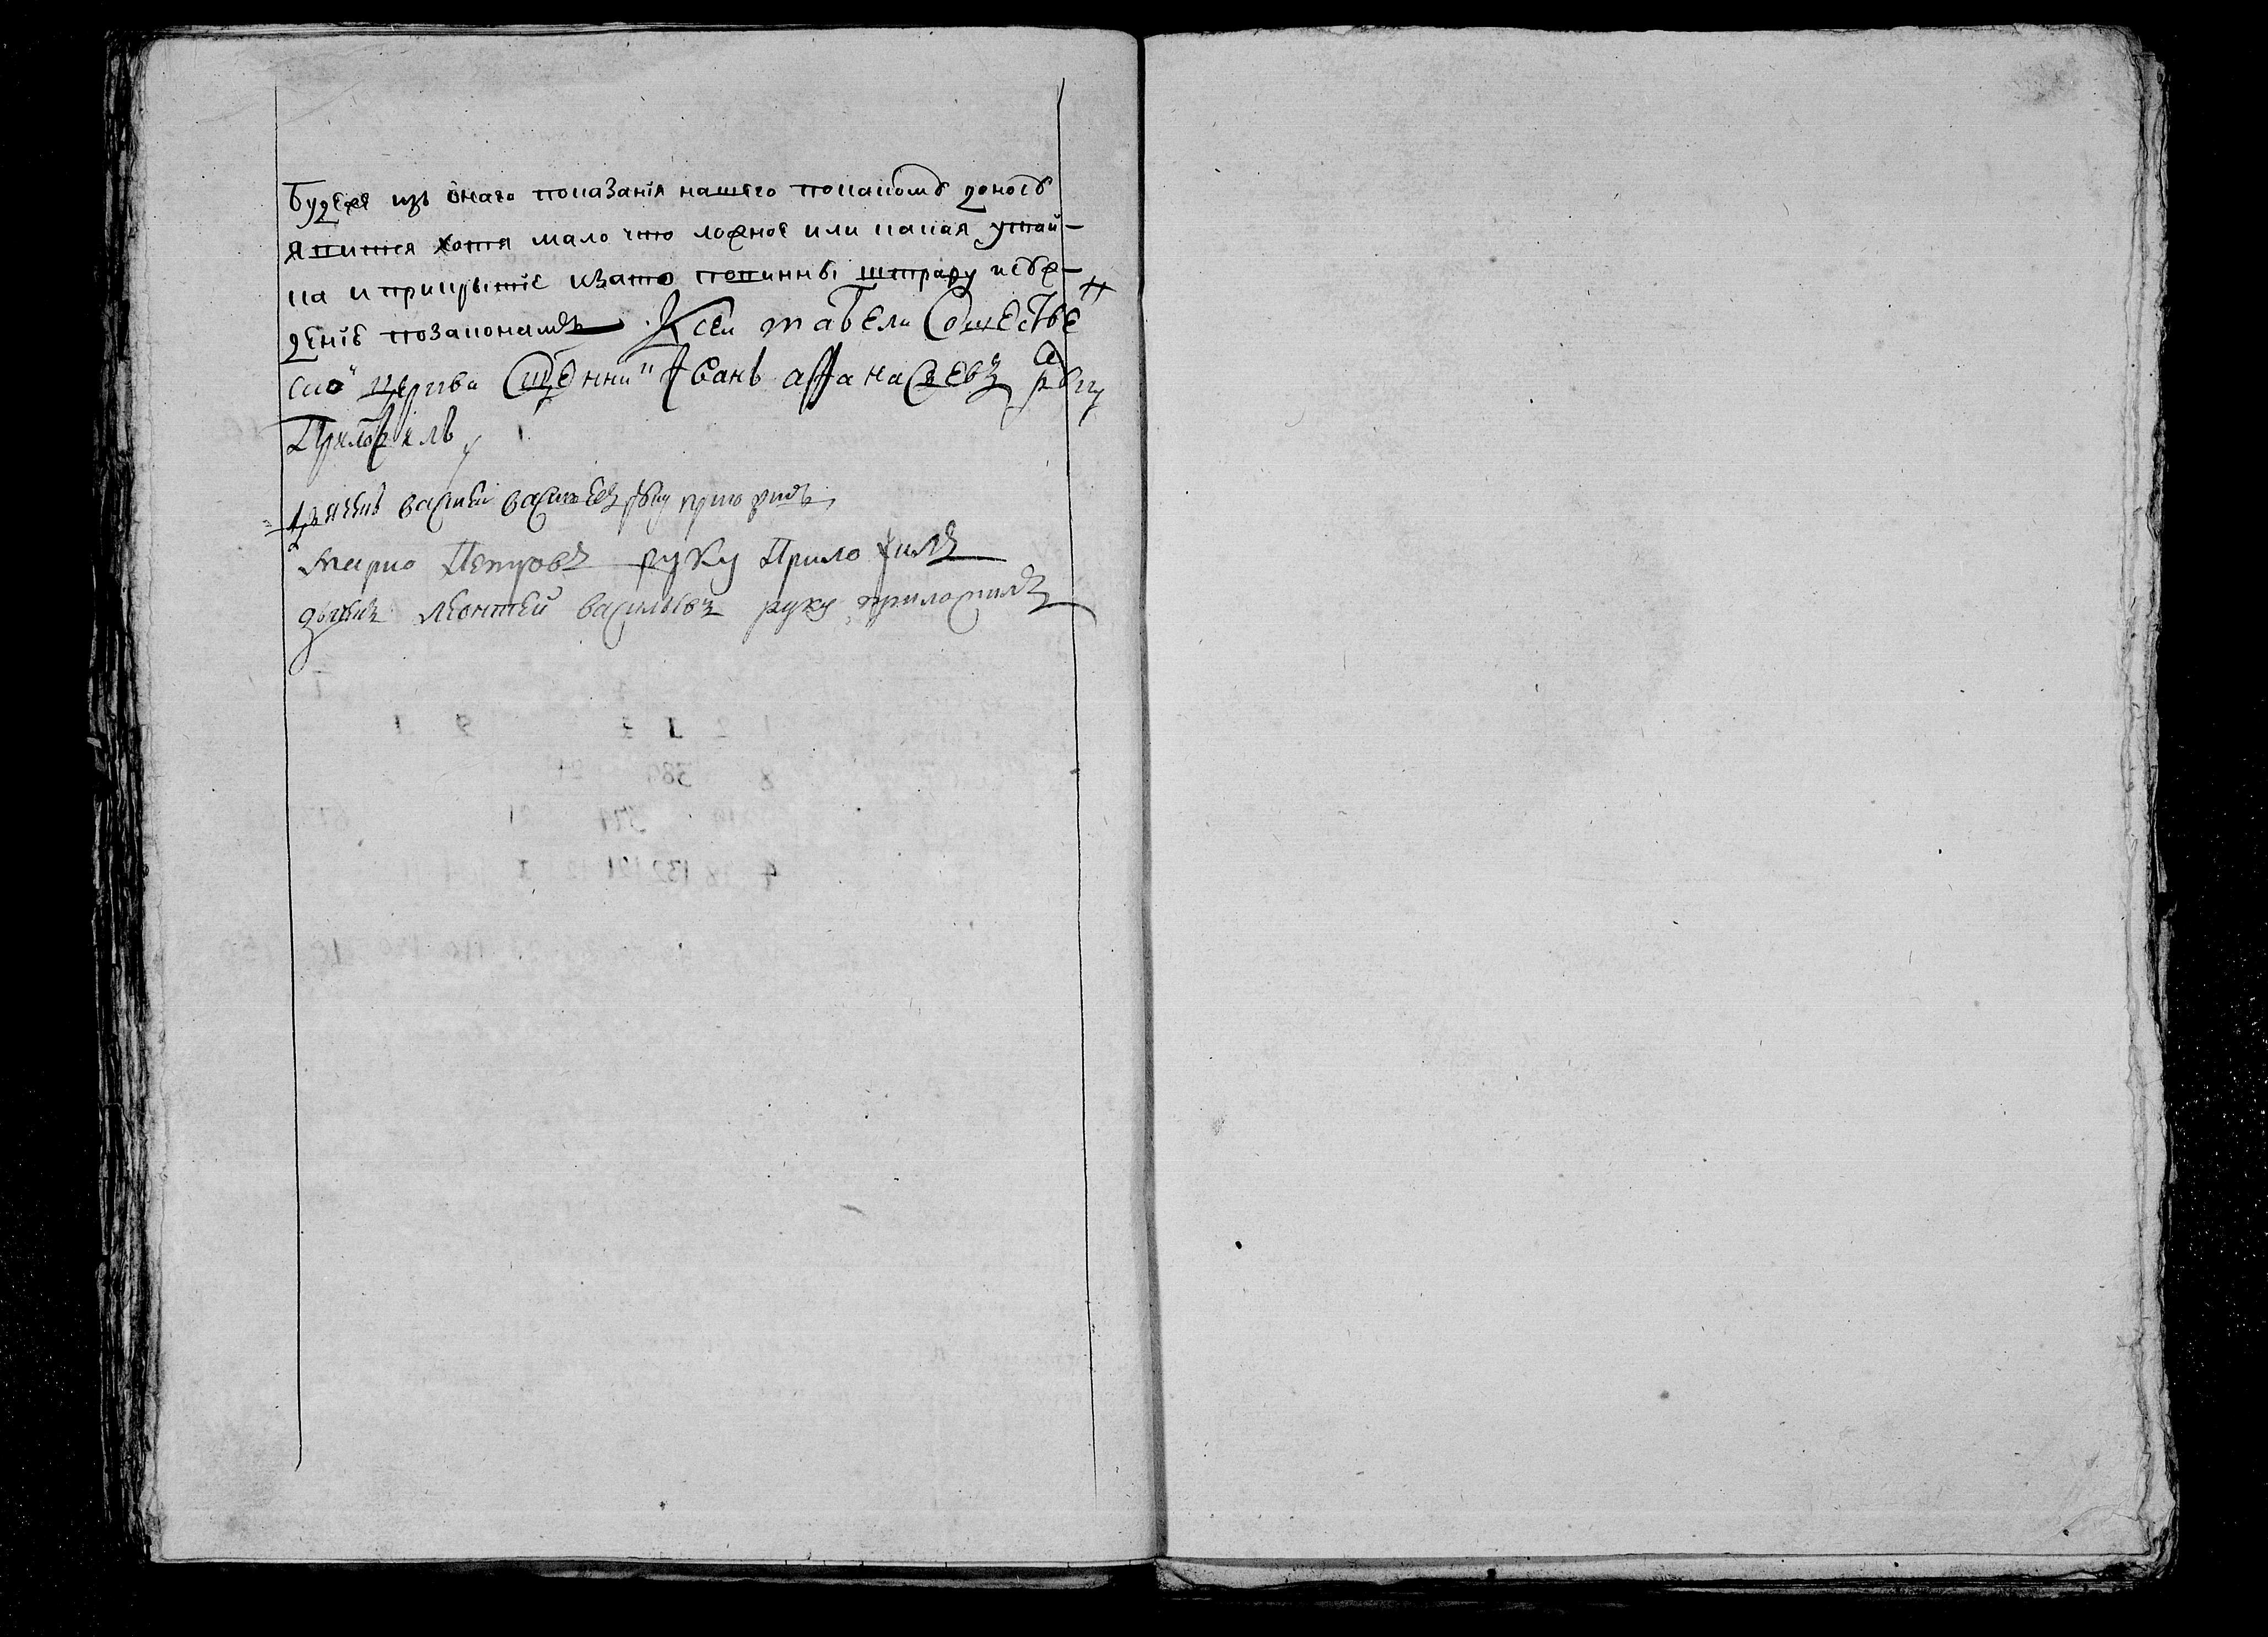 Будеже изъ онаго показанія нашего покакомѹ доносѹ
явится хотя мало что ложное или какая утай-
ка и прикрытіе изато повинны штрафу и сѹж-
денію позаконамъ К сеи табели Сошестве н
ско й церкви Сщенни къ Иванъ афанасьевъ руку
Приложилъ
диаконъ василеи васильевъ руку приложилъ
Марко Петровъ руку Приложилъ
дьячекъ леонтей васильевъ руку приложилъ